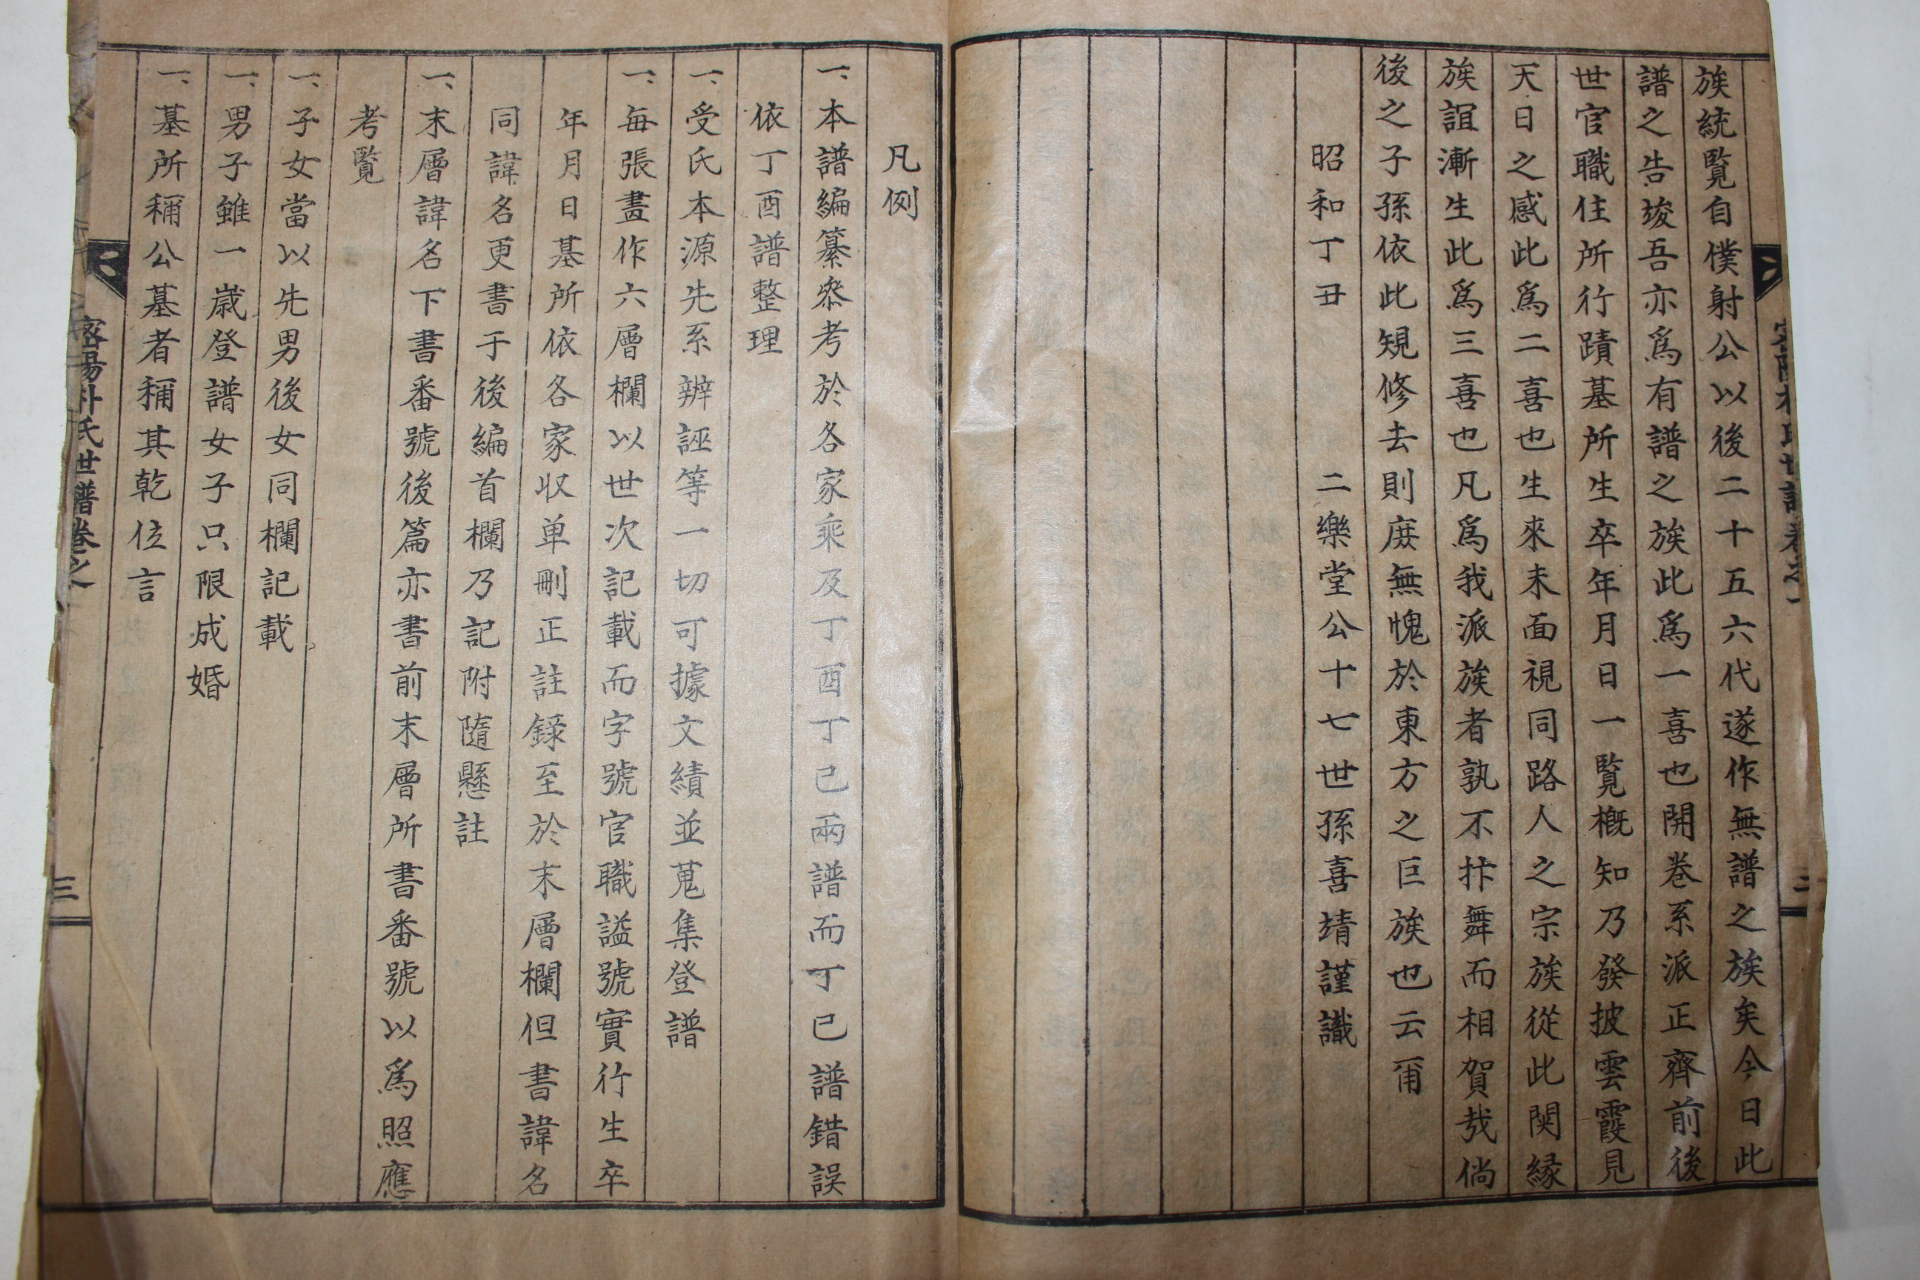 族統覽自僕射公以後二十五六代遂作無譜之族矣今日此
譜之告竣吾亦爲有譜之族此爲一喜也開卷系派正齊前後
世官職住所行蹟墓所生卒年月日一覽槪知乃發披雲霞見
天日之感此爲二喜也生來未面視同路人之宗族從此関縁
族誼漸生此爲三喜也凡爲我派族者孰不抃舞而相賀㦲倘
後之子孫依此䂓修去則庻無愧於東方之巨族也云甭
昭和丁丑　二樂堂公十七世孫喜靖謹識
凡例
一、本譜編纂叅考於各家乘及丁酉丁已兩譜而丁已譜錯誤
依丁酉譜整理
一、受氏本源先系辨誣等一切可據文績並蒐集登譜
一、每張畫作六層欄以世次記載而字號官職謚號實行生卒
年月日墓所依各家収单刪正註録至於末層欄但書諱名
同諱名更書于後編首欄乃記附隨懸註
一、末層諱名下書番號後篇亦書前末層所書番號以爲照應
考覽
一、子女當以先男後女同欄記載
一、男子雖一歲登譜女子只限成婚
一、墓所稱公墓者稱其乾位言
密陽朴氏世譜卷之一
三